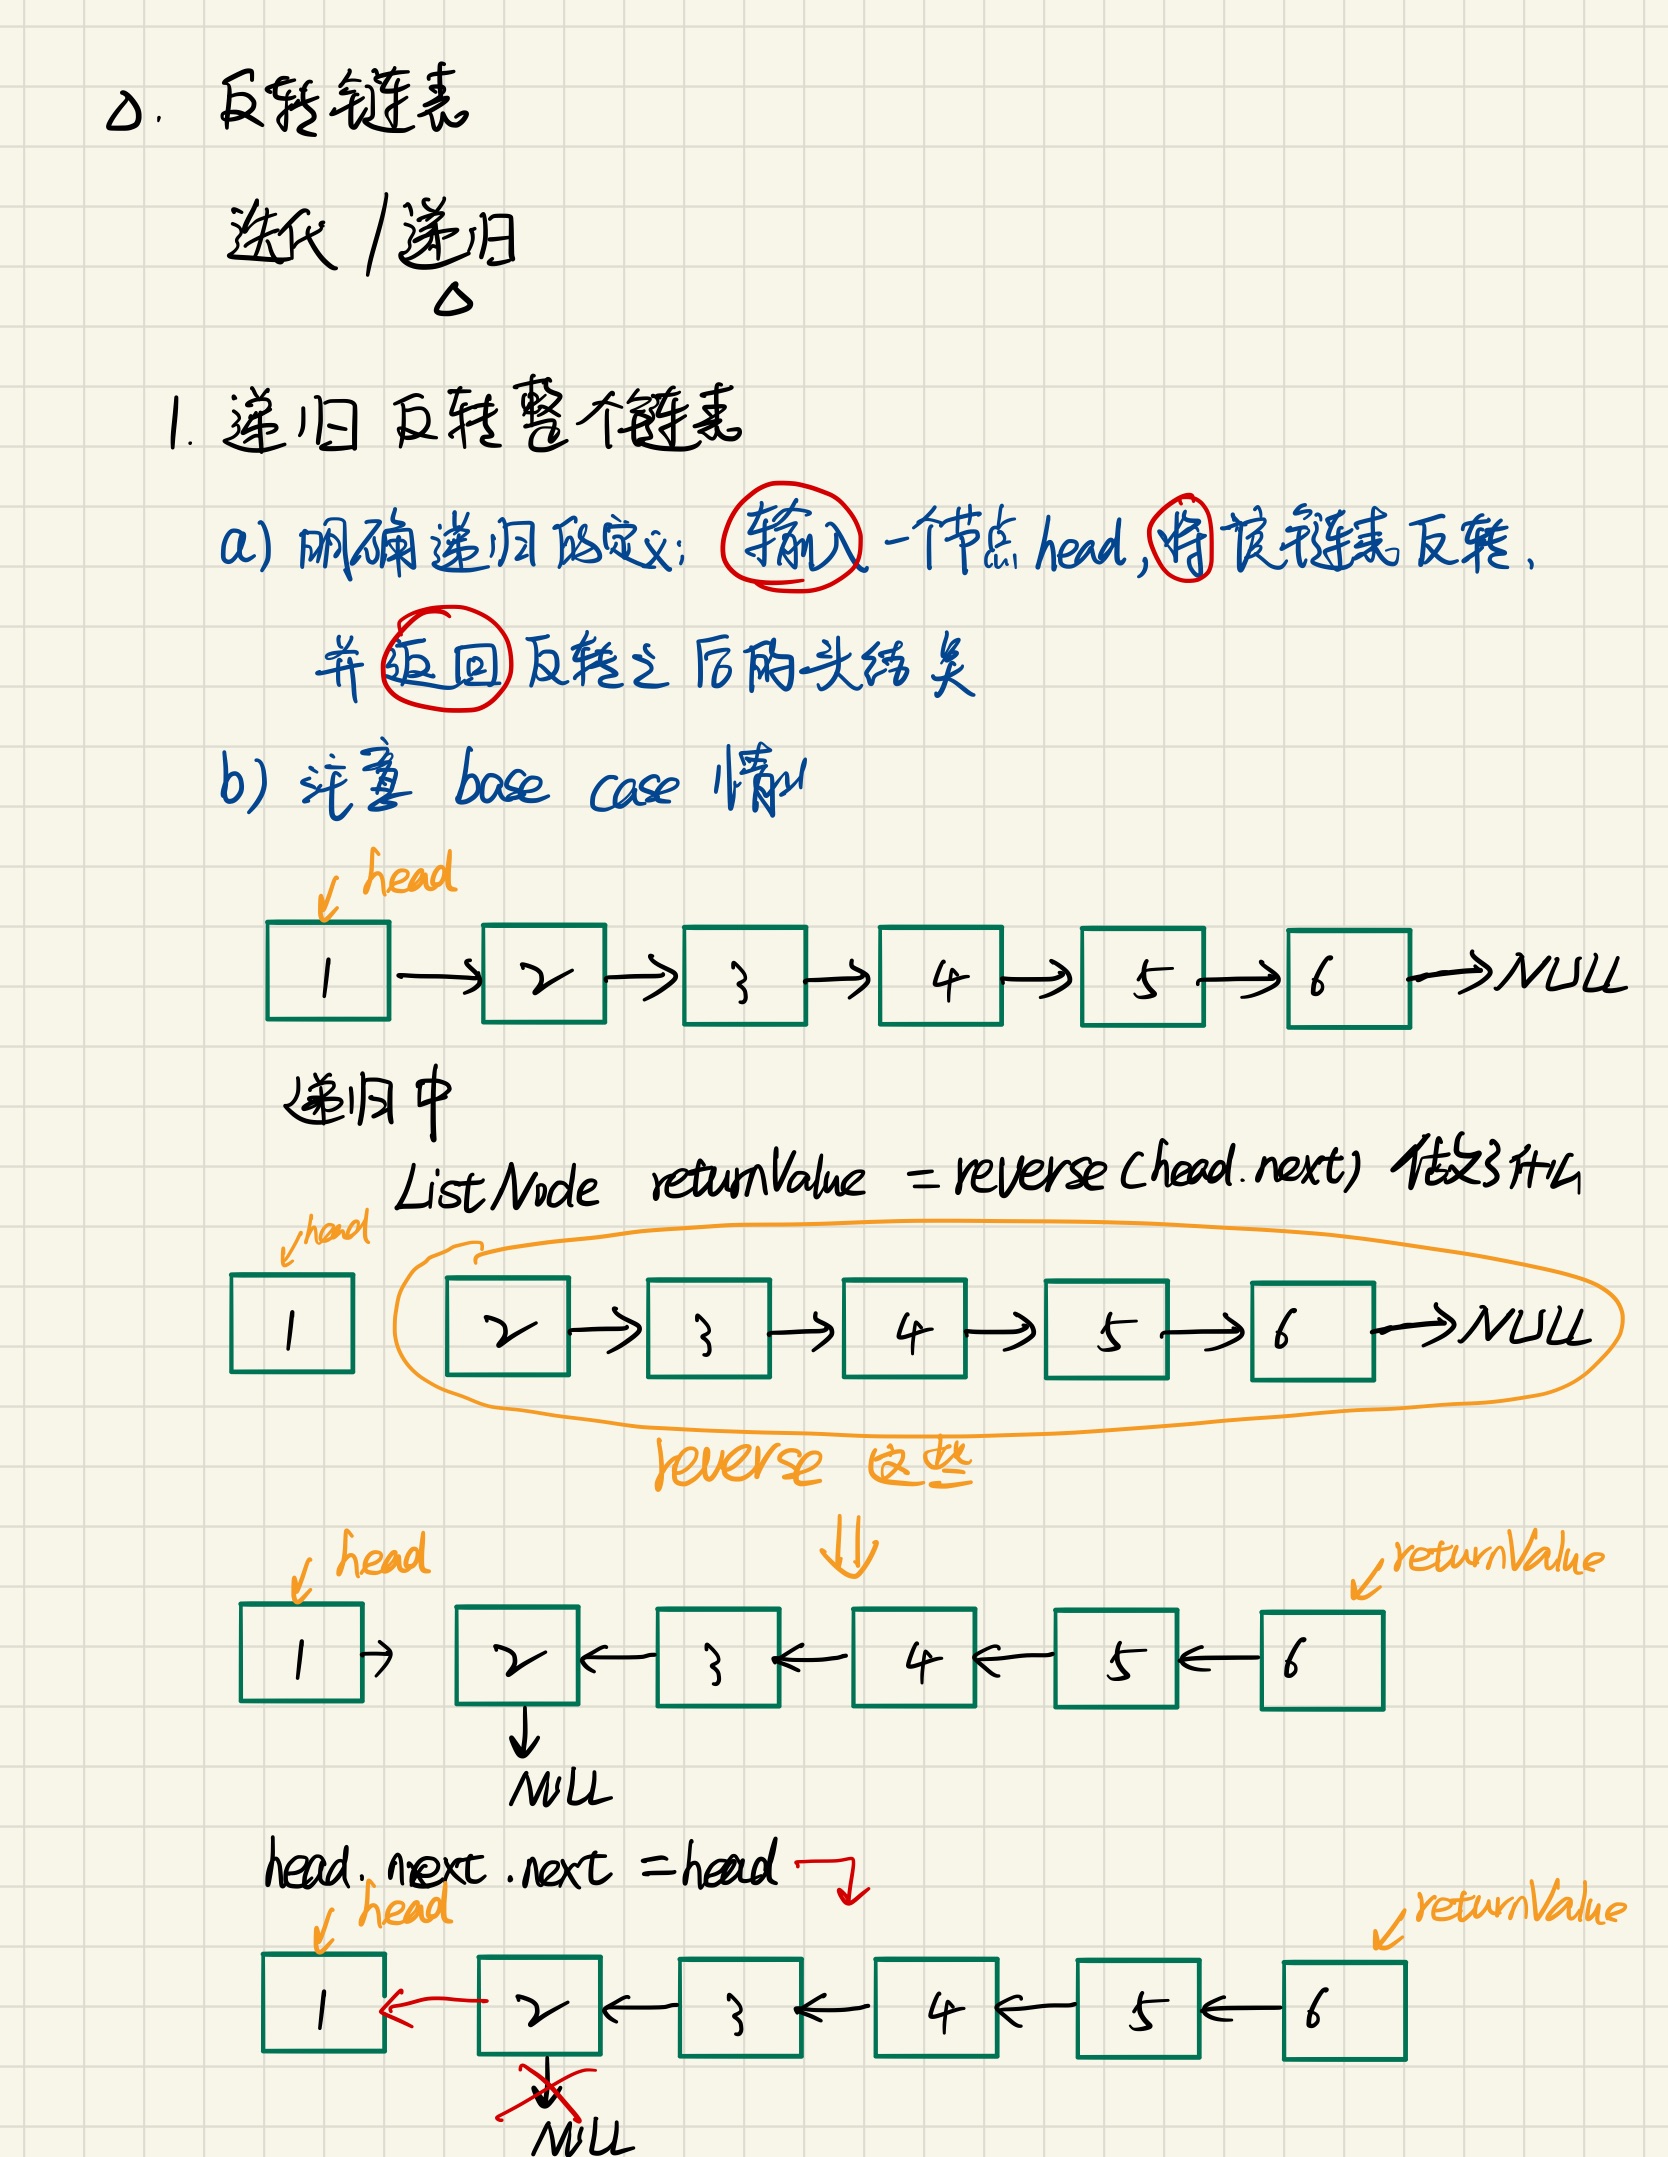 △. 反转链表
迭代 / 递归
△
1. 递归反转整个链表
a) 明确递归的定义: 输入一个节点head, 将该链表反转,
并返回反转之后的头结点
b) 注意 base case 情况
head
1 2 3 4 5 6 NULL
递归中
ListNode returnValue = reverse(head.next) 做好什么
head
1 2 3 4 5 6 NULL
reverse 这些
head returnValue
1 2 3 4 5 6
NULL
head.next.next = head
head returnValue
1 2 3 4 5 6
NULL